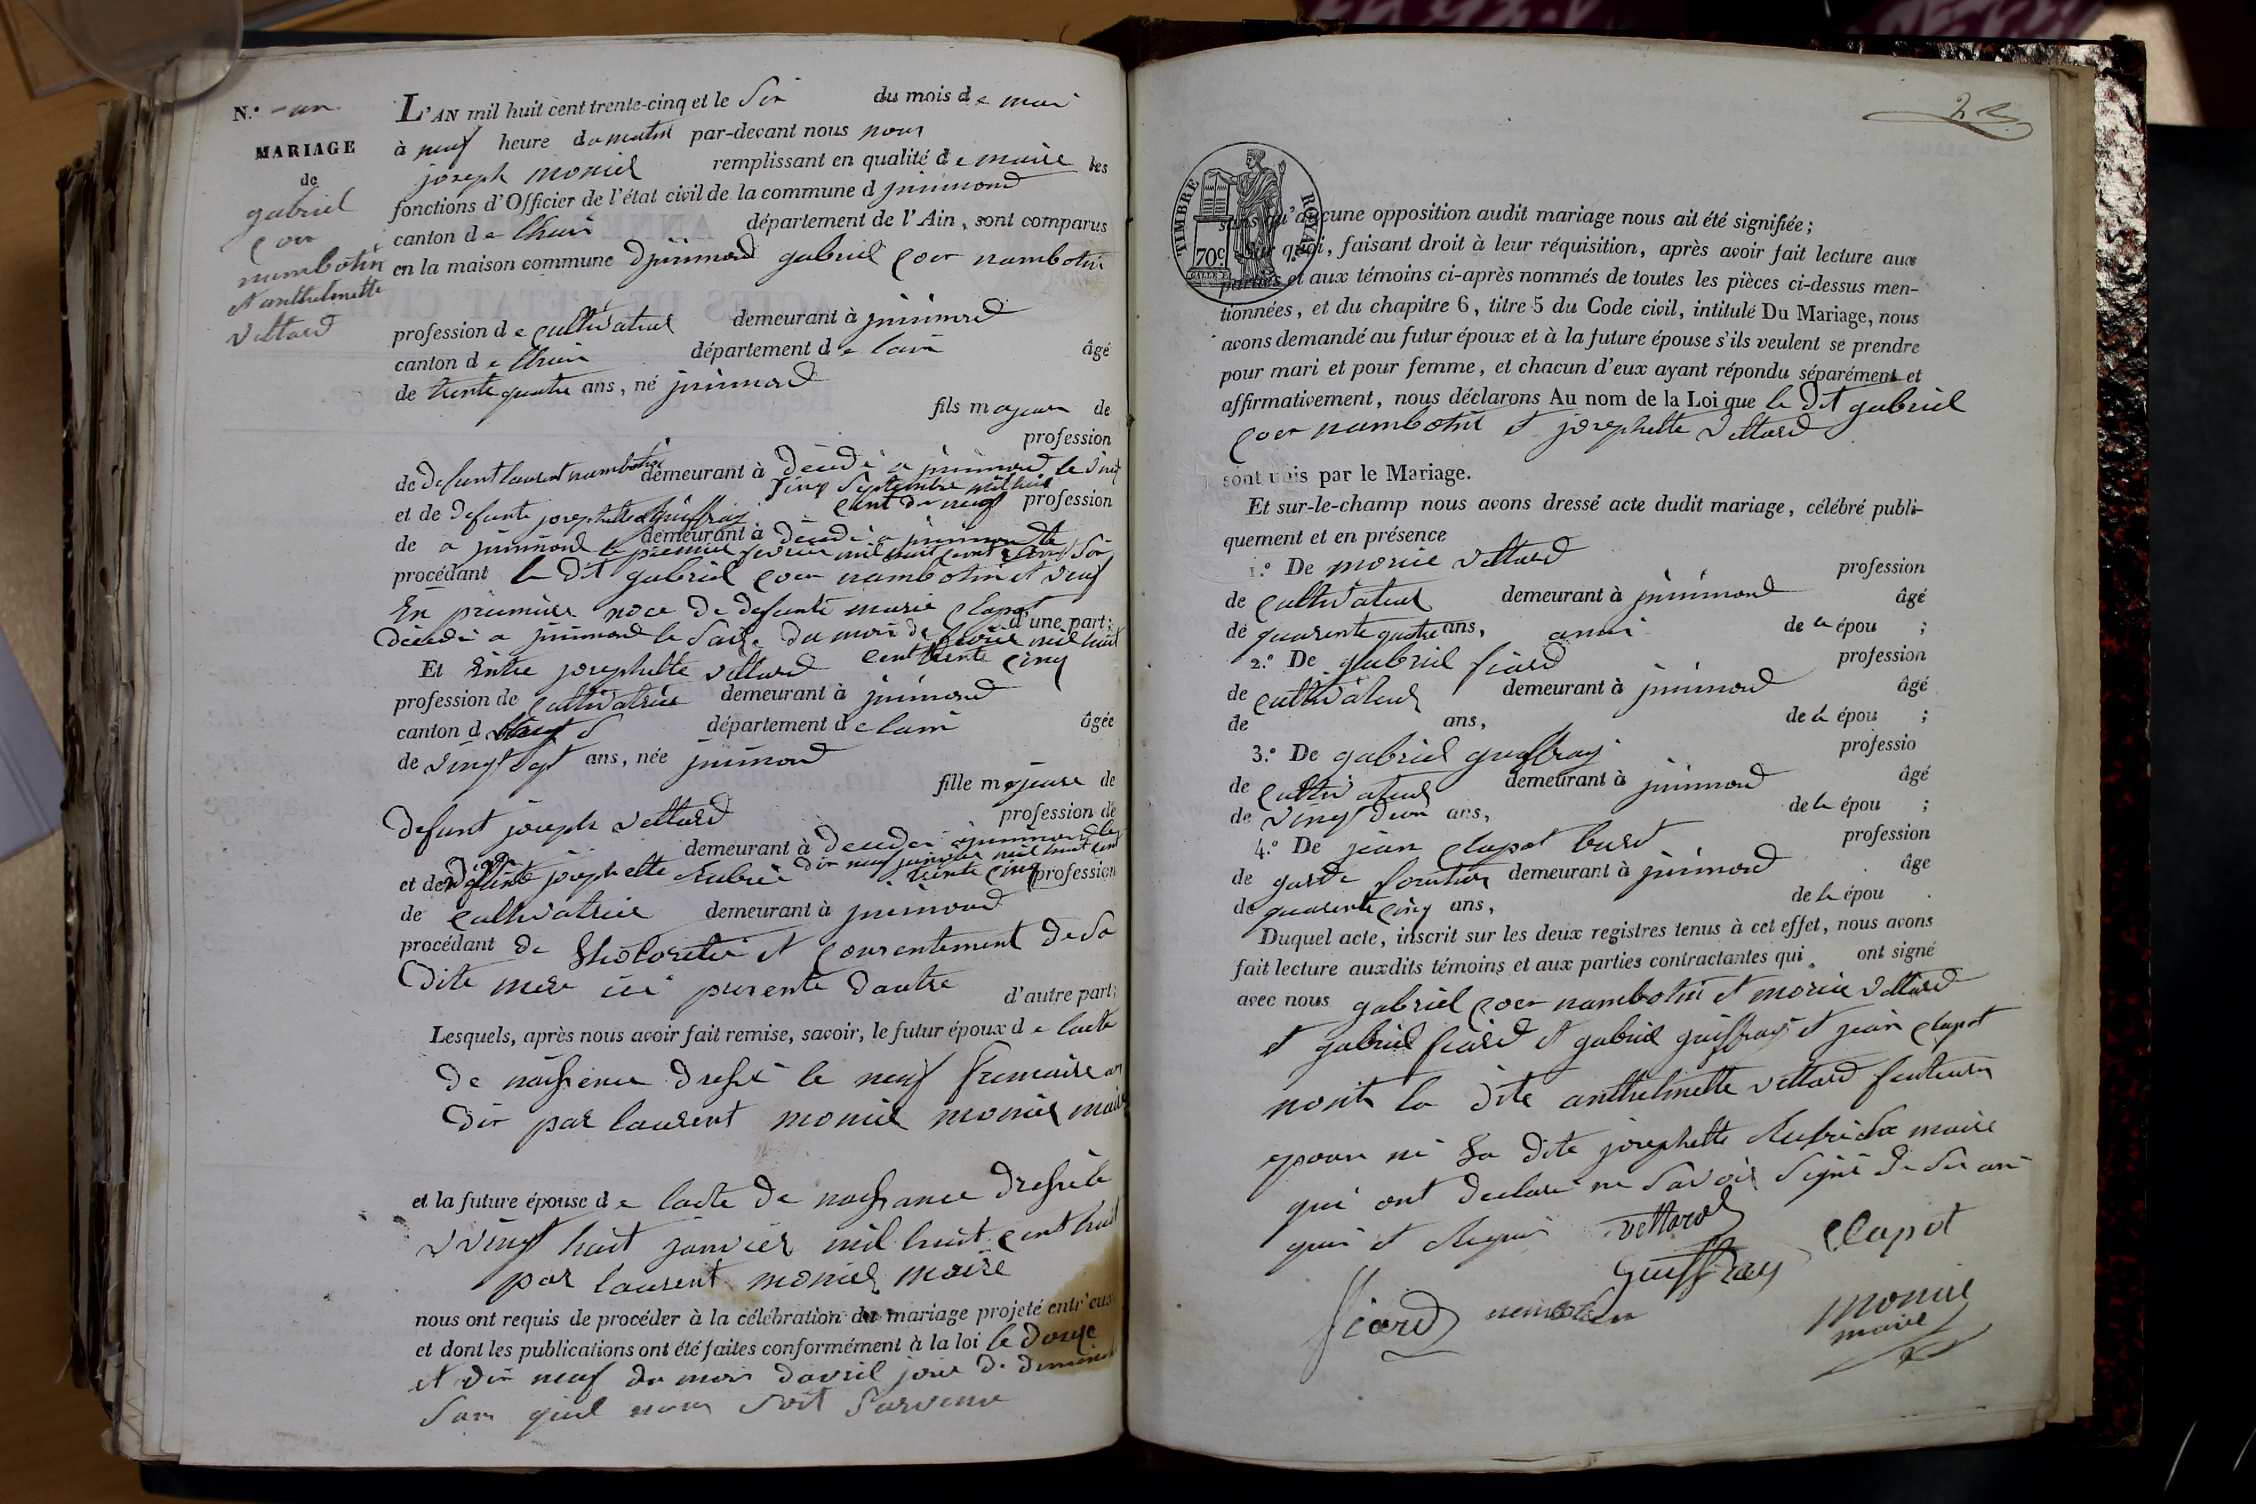 N.º un
MARIAGE
de
gabriel
coer
nambotin
et anthelmette
vettard
L'AN mil huit cent trente-cinq et le Six du mois de mai
à neuf heure du matin par-devant nous nous
joseph monier remplissant en qualité de maire les
fonctions d'Officier de l'état civil de la commune d jnnimond
canton de lhui département de l'Ain, sont comparus
en la maison commune Djnnimond gabriel coer nambotin
profession de cultivateur demeurant à jnnimond
canton de lhui département de lain âgé
de trente quatre ans, né jnnimond
fils majeur de
profession
de Defunt laurent nambotin demeurant à décédé a jnnimond le vingt
cinq Septembre mil huit
cent dix neuf
et de defunte josephette guiffray profession
de a jnnimond demeurant à décédé a jnnimond
le premier fevrier mil huit cent
procédant le Dit gabriel coer nambotin et veuf
En premiere noce de defunte marie Clapot
d'une part;
décédé a jnnimond le du mois de fevrier mil huit
cent trente cinq
Et Entre josephette vettard
profession de cultivatrice demeurant à jnnimond
canton d département de lain âgée
de vingt Sept ans, née jnnimond
fille majeure de
defunt joseph vettard profession de
demeurant à décédé a jnnimond le
dix neuf janvier mil huit cent
trente cinq
et de josephette profession
de cultivatrice demeurant à jnnimond
procédant de et consentement de Sa
Dite mere ici presente dautre d'autre part;
Lesquels, après nous avoir fait remise, savoir, le futur époux de lacte
De naissence dressé le neuf frimaire an
Dix par laurent monier monier maire
et la future épouse de lacte de naissance dressé le
vingt huit janvier mil huit cent huit
par laurent monier maire
nous ont requis de procéder à la célébration du mariage projeté entr'eux
et dont les publications ont été faites conformément à la loi le douze
et dix neuf du mois davril jour de dimanche
San quil nous Soit Survenu
TIMBRE ROYAL
70c
sans qu'aucune opposition audit mariage nous ait été signifiée;
Sur quoi, faisant droit à leur réquisition, après avoir fait lecture aux
parties et aux témoins ci-après nommés de toutes les pièces ci-dessus men-
tionnées, et du chapitre 6, titre 5 du Code civil, intitulé Du Mariage, nous
avons demandé au futur époux et à la future épouse s'ils veulent se prendre
pour mari et pour femme, et chacun d'eux ayant répondu séparément et
affirmativement, nous déclarons Au nom de la Loi que le dit gabriel
coer nambotin et josephette vettard
sont unis par le Mariage.
Et sur-le-champ nous avons dressé acte dudit mariage, célébré publi-
quement et en présence
1.º De morice vettard profession
de cultivateur demeurant à jnnimond âgé
de quarente quatre ans, ami de le épou ;
2.º De gabriel ficard profession
de cultivateur demeurant à jnnimond âgé
de ans, de le épou ;
3.º De gabriel guiffray professio
de cultivateur demeurant à jnnimond âgé
de vingt deux ans, de le épou ;
4.º De jean clapot profession
de garde forestier demeurant à jnnimond âge
de quarente cinq ans, de le épou
Duquel acte, inscrit sur les deux registres tenus à cet effet, nous avons
fait lecture auxdits témoins et aux parties contractantes qui ont signé
avec nous gabriel coer nambotin et morice vettard
et gabriel ficard et gabriel guiffray et jean clapot
nont la dite anthelmette vettard
epoux ni Sa dite josephette
qui ont declare ne Savoir Signé de Se
quis et Requis
vettard
Clapot
Guiffray
ficard
nembotin
monier
maire